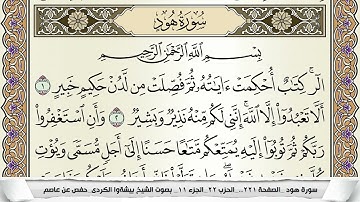 سُورَةُ هُودٍ
بِسْمِ اللَّهِ الرَّحْمَٰنِ الرَّحِيمِ
الٓر ۚ كِتَٰبٌ أُحْكِمَتْ ءَايَٰتُهُۥ ثُمَّ فُصِّلَتْ مِن لَّدُنْ حَكِيمٍ خَبِيرٍ ١
أَلَّا تَعْبُدُوٓا۟ إِلَّا ٱللَّهَ ۚ إِنَّنِى لَكُم مِّنْهُ نَذِيرٌ وَبَشِيرٌ ٢ وَأَنِ ٱسْتَغْفِرُوا۟
رَبَّكُمْ ثُمَّ تُوبُوٓا۟ إِلَيْهِ يُمَتِّعْكُم مَّتَٰعًا حَسَنًا إِلَىٰٓ أَجَلٍ مُّسَمًّى وَيُؤْتِ
سورة هود _الصفحة ٢٢١_ الحزب ٢٢_ الجزء ١١_ بصوت الشيخ بيشةوا الكردي_ حفص عن عاصم